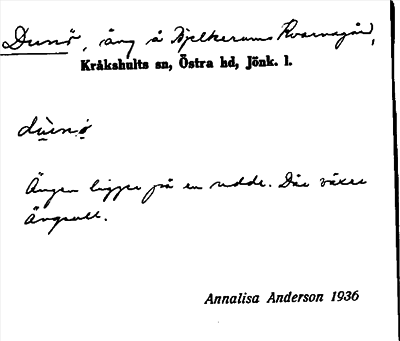 Dunö, äng å Hjelkerums Kvarnagård,
Kråkshults sn, Östra hd, Jönk. l.
dùnö
Ängen ligger på en udde. Där växer
Ängsull.
Annalisa Anderson 1936